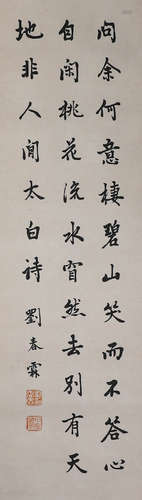 問余何意棲碧山笑而不答心
自閑桃花流水窅然去別有天
地非人間太白詩
劉春霖